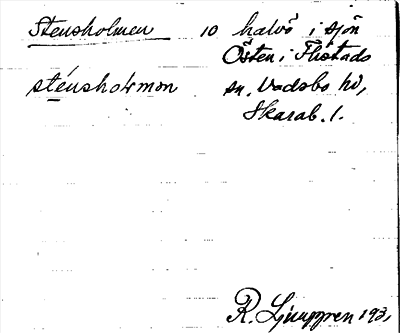 Stensholmen 10 halvö i sjön
Östen i Flistads
sténsholmon sn. Vadsbo hd,
Skarab. l.
R. Ljunggren 193